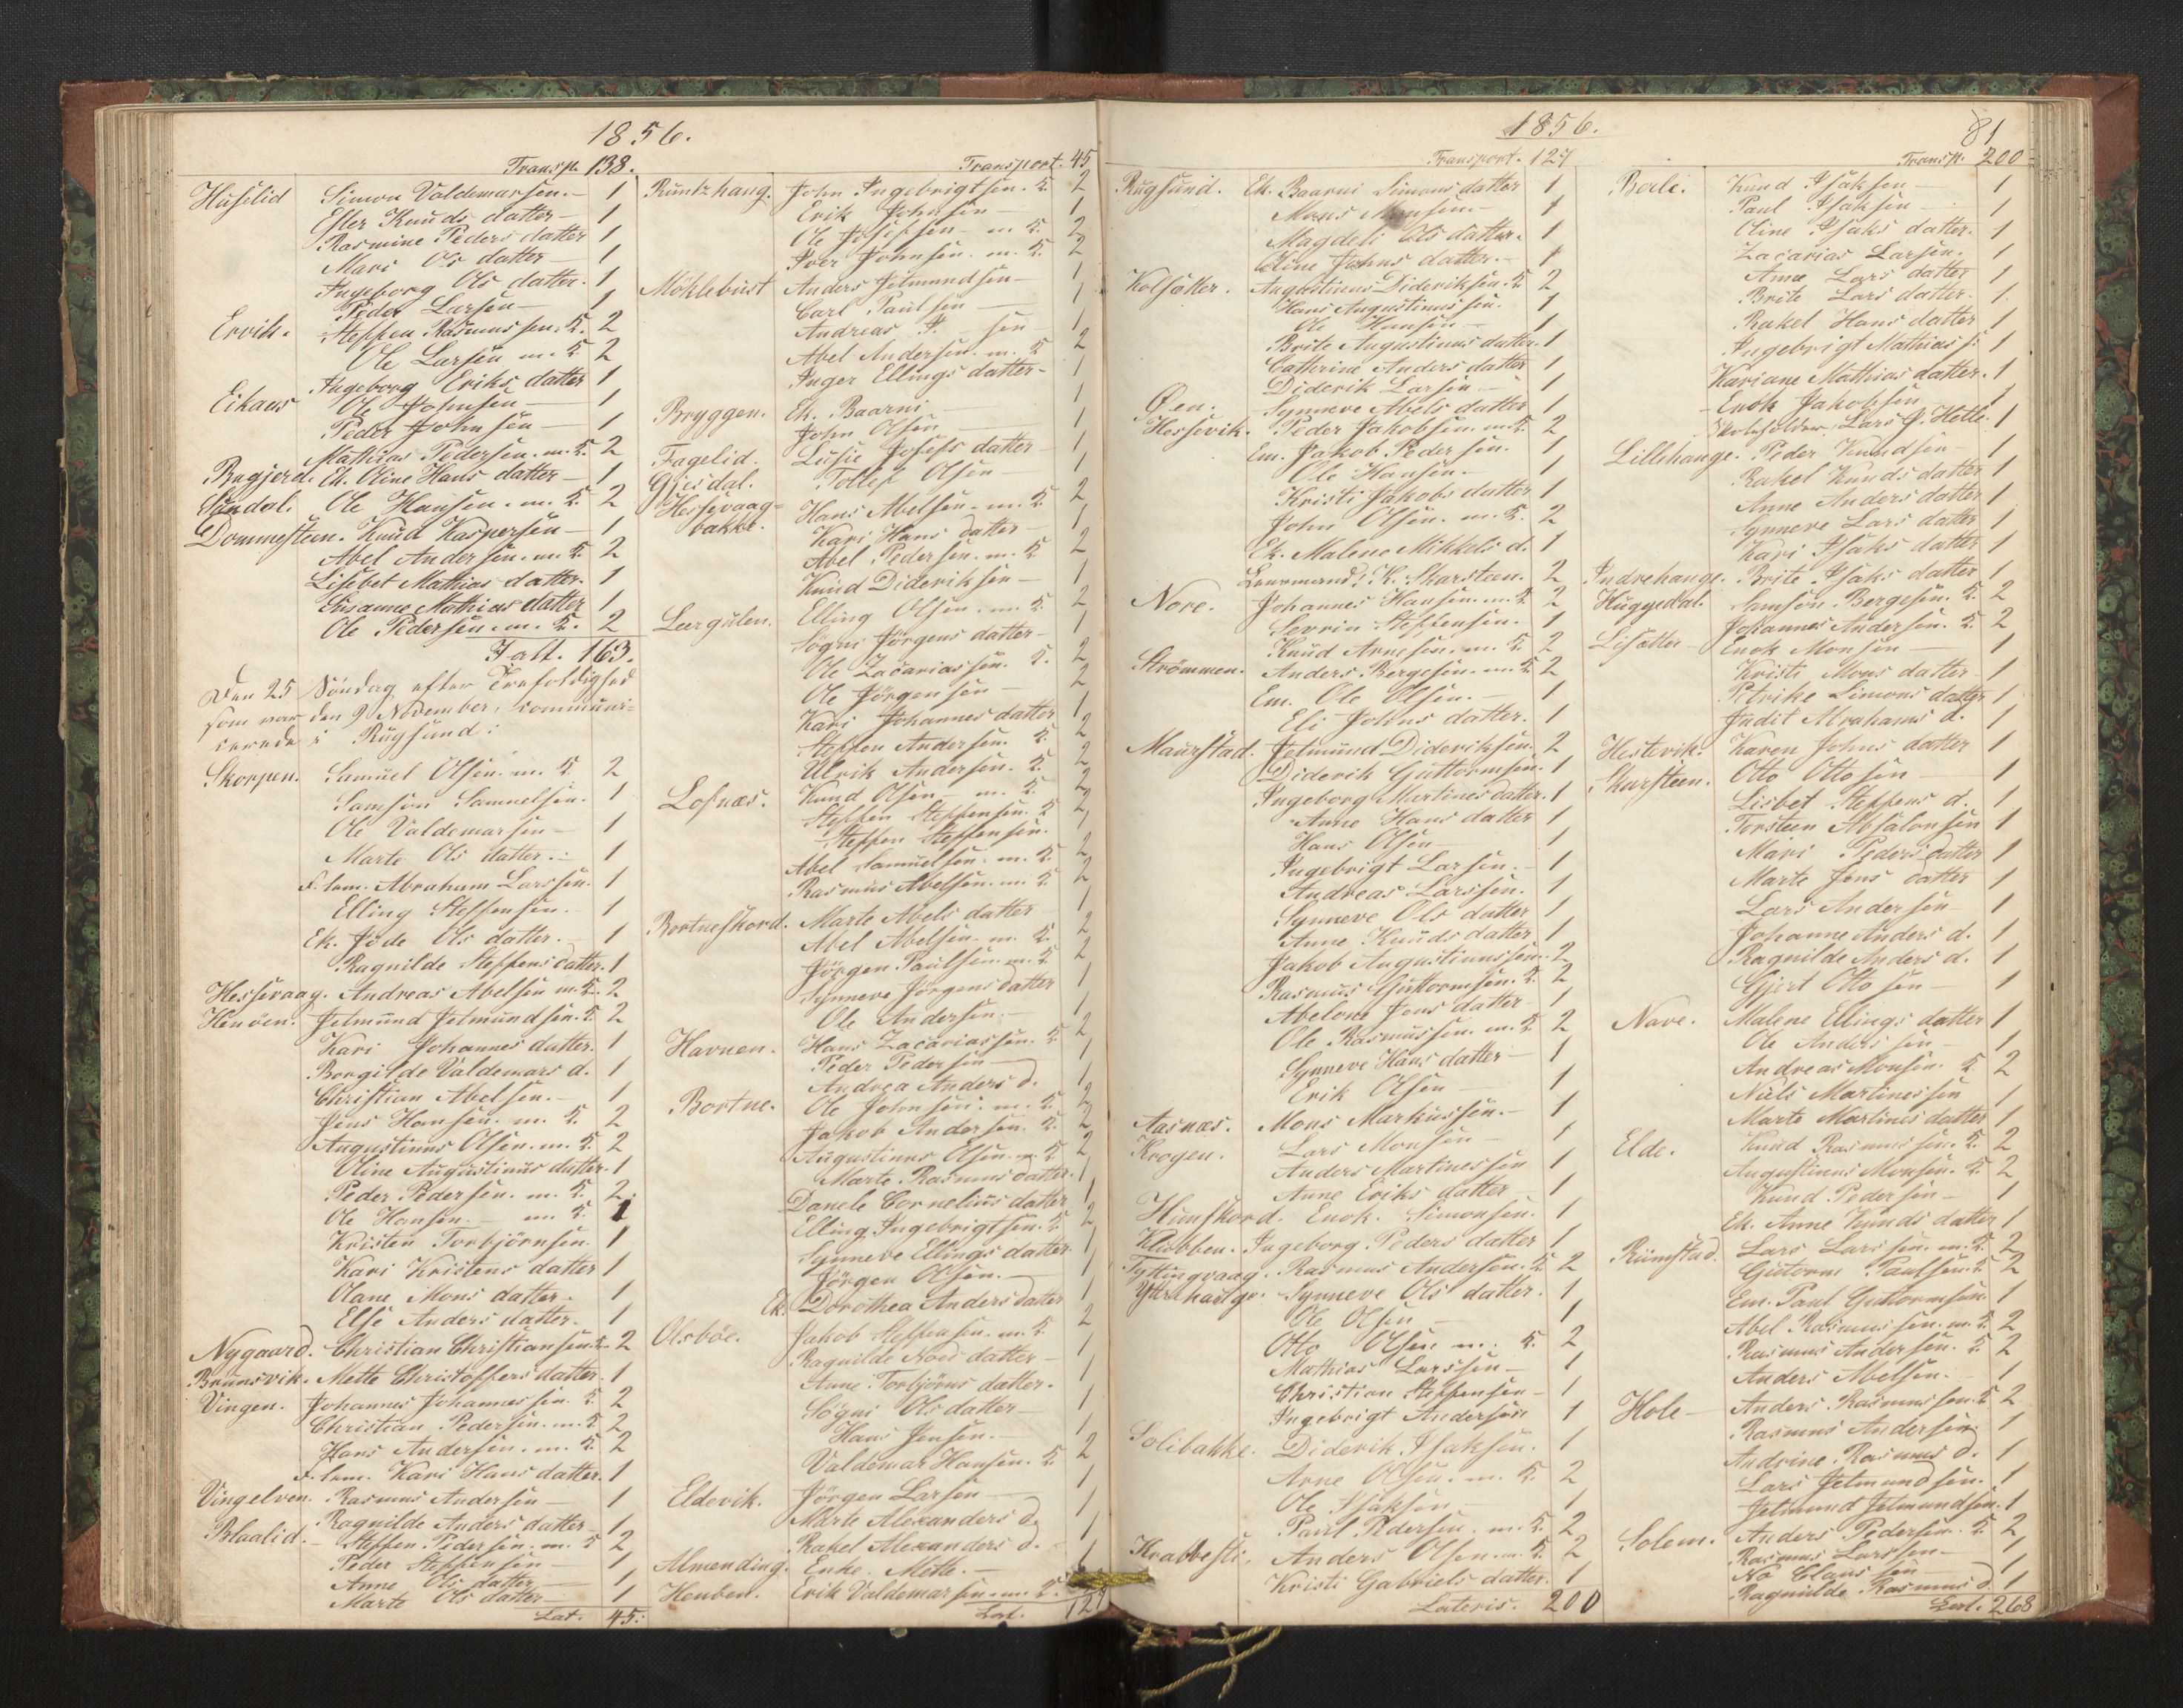 1856.
Transp. 138.
Huselid Simon Valdemarsen. 1
Ester Knuds datter 1
Rasmine Peders datter 1
Mari Ols datter 1
Ingeborg Ols datter. 1
Peder Larsen 1
Ervik. Steffen Rasmussen. K. 2
Ole Larsen m. K. 2
Ingeborg Eriks datter 1
Eikaas Ole Johnsen 1
Peder Johnsen 1
Mathias Pedersen. m. K. 2
Bagjerd. Ek. Oline Hans datter 1
Sandal. Ole Hansen. m. K. 2
Dommesteen. Knud Kaspersen 1
Abel Andersen. m. K. 2
Lisebet Mathias datter. 1
Susanne Mathias datter 1
Ole Pedersen. m. K. 2
I alt. 163.
Den 25 Søndag efter Trefoldighed
som var den 9 November, communi-
cerede i Rugsund:
Skorpen. Samuel Olsen. m. K. 2
Samson Samuelsen. 1
Ole Valdemarsen 1
Marte Ols datter. 1
F. lem. Abraham Larssen. 1
Elling Steffensen. 1
Ek. Jøde Ols datter. 1
Ragnilde Steffens datter. 1
Hessevaag. Andreas Abelsen m. K. 2
Henøen. Jetmund Jetmundsen. K. 2
Kari Johannes datter. 1
Borgilde Valdemars d. 1
Christian Abelsen. 1
Jens Hansen. m. K. 2
Augustinus Olsen. m. K. 2
Oline Augustinus datter. 1
Peder Pedersen. m. K. 2.
Ole Hansen. m. K. 1
Kristen Torbjørnsen. 1
Kari Kristens datter 1
Olane Mons datter. 1
Else Anders datter. 1
Nygaard. Christian Christiansen. K. 2
Brunsvik. Mette Christoffers datter. 1
Vingen. Johannes Johannessen. K. 2
Christian Pedersen. m. K. 2
Hans Andersen. m. K. 2
F. lem. Kari Hans datter. 1
Vingelven. Rasmus Andersen 1
Ragnilde Anders datter 1
Blaalid. Steffen Pedersen. m. K. 2
Peder Steffensen 1
Anne Ols datter 1
Marte Ols datter 1
Lat. 45.
Transport. 45
Runtzhaug. John Ingebrigtsen. K. 2
Erik Johnsen 1
Ole Josefsen m. K. 2
Iver Johnsen. m. K. 2
Möhlebust Anders Jetmundsen 1
Carl Paulsen 1
Andreas P. sen 1
Abel Andersen. m. K. 2
Inger Ellings datter 1
Bryggen. Ek. Baarni 1
John Olsen 1
Fagelid. Lusie Josefs datter 1
Gjesdal. Tollef Olsen 1
Hessevaag- Hans Abelsen. m. K. 2
bakke. Kari Hans datter 1
Abel Pedersen. m. K. 2
Knud Dideriksen 1
Lergulen. Elling Olsen. m. K. 2
Søgni Jørgens datter 1
Ole Zacariassen. K. 2
Ole Jørgensen 2
Kari Johannes datter 1
Steffen Andersen. K. 2
Ulrik Andersen. K. 2
Lofnæs. Knud Olsen m. K. 2
Steffen Steffensen. K. 2
Steffen Steffensen. 1
Abel Samuelsen. m. K. 2
Rasmus Abelsen. m. K. 2
Bortneskord. Marte Abels datter 1
Abel Abelsen. m. K. 2
Jørgen Paulsen. m. K. 2
Synneve Jørgens datter 1
Ole Andersen. 1
Havnen. Hans Zacariassen. K. 2
Peder Pedersen 1
Andrea Anders d. 1
Bortne. Ole Johnsen. m. K. 2
Jakob Andersen. K. 2
Augustinus Olsen. m. K. 2
Marte Rasmus datter. 1
Danele Cornelius datter 1
Elling Ingebrigtsen. K. 2
Synneve Ellings datter. 1
Jörgen Olsen. 1
Ek. Dorothea Anders datter 1
Olsböe. Jakob Steffensen. m. K. 2
Ragnilde Noes datter 1
Anne Torbjørns datter. 1
Søgni Ols datter 1
Hans Jensen. 1
Valdemar Hansen. K. 2
Eldevik. Jörgen Larsen 1
Marte Alexanders d. 1
Rakel Alexanders d. 1
Almending. Enke. Mette. 1
Henben. Erik Valdemarsen. m. K.
Lat. 127
1856.
81
Transport. 127
Rugsund. Ek. Baarni Simons datter 1
Mons Monsen 1
Magdeli Ols datter. 1
Oline Johns datter. 1
Kolsætter. Augustinus Dideriksen. K. 2
Hans Augustinussen. 1
Ole Hansen 1
Brite Augustinus datter. 1
Cathrine Anders datter 1
Diderik Larsen 1
Øen. Synneve Abels datter 1
Hessevik. Peder Jakobsen. m. K. 2
Em. Jakob Pedersen. 1
Ole Hansen. 1
Kristi Jakobs datter 1
John Olsen. m. K. 2
Ek. Malene Mikkels d. 1
Lensmand: K. Skarsteen. 2
Nore. Johannes Hansen. m. K. 2
Sevrin Steffensen. 1
Knud Arnesen. m. K. 2
Strömmen. Anders Bergesen. m. K. 2
Em. Ole Olsen. 1
Eli Johns datter. 1
Maurstad. Jetmund Dideriksen. 2
Diderik Guttormsen. 1
Ingeborg Martines datter. 1
Anne Hans datter 1
Hans Olsen 1
Ingebrigt Larsen. 1
Andreas Larssen. 1
Synneve Ols datter 1
Anne Knuds datter 1
Jakob Augustinussen. 2
Rasmus Guttormsen. K. 2
Abelone Jens datter 1
Ole Rasmussen. m. K. 2
Synneve Hans datter 1
Erik Olsen 1
Aasnæs. Mons Markussen. 1
Krogen. Lars Monsen 1
Anders Martinessen 1
Anne Eriks datter 1
Hunskord. Enok. Simonsen. 1
Klubben. Ingeborg Peders datter 1
Tyttingvaag. Rasmus Andersen. K. 2
Yttrehauge. Synneve Ols datter. 1
Ole Olsen 1
Otto Olsen m. K. 2
Mathias Larssen 1
Christian Steffensen 1
Ingebrigt Andersen 1
Solibakke. Diderik Isaksen. 1
Arne Olsen. m. K. 2
Ole Isaksen 1
Paul Pedersen. m. K. 2
Krabbesti. Anders Olsen. m. K. 2
Kristi Gabriels datter. 1
Lateris. 200
Transp. 200
Berle. Knud Isaksen 1
Paul Isaksen 1
Oline Isaks datter. 1
Zacarias Larsen. 1
Anna Lars datter 1
Brite Lars datter. 1.
Rakel Hans datter 1
Ingebrigt Mathias s. 1
Kariane Mathias datter. 1
Enok Jakobsen 1
Skoleholder, Lars J. Hetle. 1
Lillehauge. Peder Knudsen 1
Rakel Knuds datter 1
Anne Anders datter 1
Synneve Lars datter 1
Kari Isaks datter 1
Indrehauge. Brite Isaks datter 1
Hugyedal. Samson Bergesen. K. 2
Johannes Andersen. K. 2
Lisætter Enok Monsen 1
Kristi Mons datter 1
Petrike Simons datter 1
Judit Abrahams d. 1
Hestevik. Karen Johns datter 1
Skarsteen. Otto Ottosen 1
Lisbet Steffens d. 1
Torsteen Absalonsen 1
Mari Peders datter 1
Marte Jens datter 1
Lars Andersen 1
Johanne Anders d. 1
Ragnilde Anders d. 1
Gjert Ottosen 1
Nave. Malene Ellings datter 1
Ole Anderssen 1
Andreas Monsen. K. 2
Niels Martinessen 1
Marte Martines datter 1
Elde. Knud Rasmussen. K. 2
Augustinus Monsen. K. 2
Knud Pedersen 1
Ek. Anne Knuds datter 1
Rimstad. Lars Larssen. m. K. 2
Gutorm Paulsen. K. 2
Em. Paul Guttormsen. 1
Abel Rasmussen. m. K. 2
Rasmus Andersen. K. 2
Anders Abelsen. 1
Hole Anders Rasmussen. K. 2
Rasmus Andersen. 1
Andrine Rasmus d. 1
Lars Jetmundsen. 1
Jetmund Jetmundsen. 1
Solem. Anders Pedersen. K. 2
Rasmus Larssen 1
No Claussen 1
Ragnilde Rasmus d. 1
Lat. 268